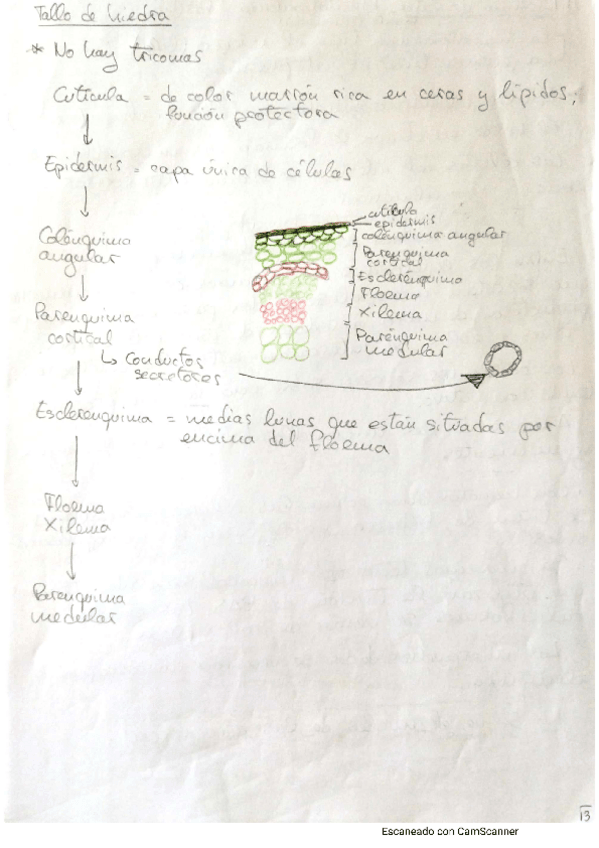 Tallo de hiedra
* No hay tricomas
Cutícula = de color marrón rica en ceras y lípidos;
función protectora
Epidermis = capa única de células
Colénquima
angular
Parenquima
cortical
↳ Conductos
secretores
cutícula
epidermis
colénquima angular
Parenquima
cortical
Esclerénquima
Floema
Xilema
Parénquima
medular
Esclerenquima = medias lunas que están situadas por
encima del floema
Floema
Xilema
Parenquima
medular
13
Escaneado con CamScanner